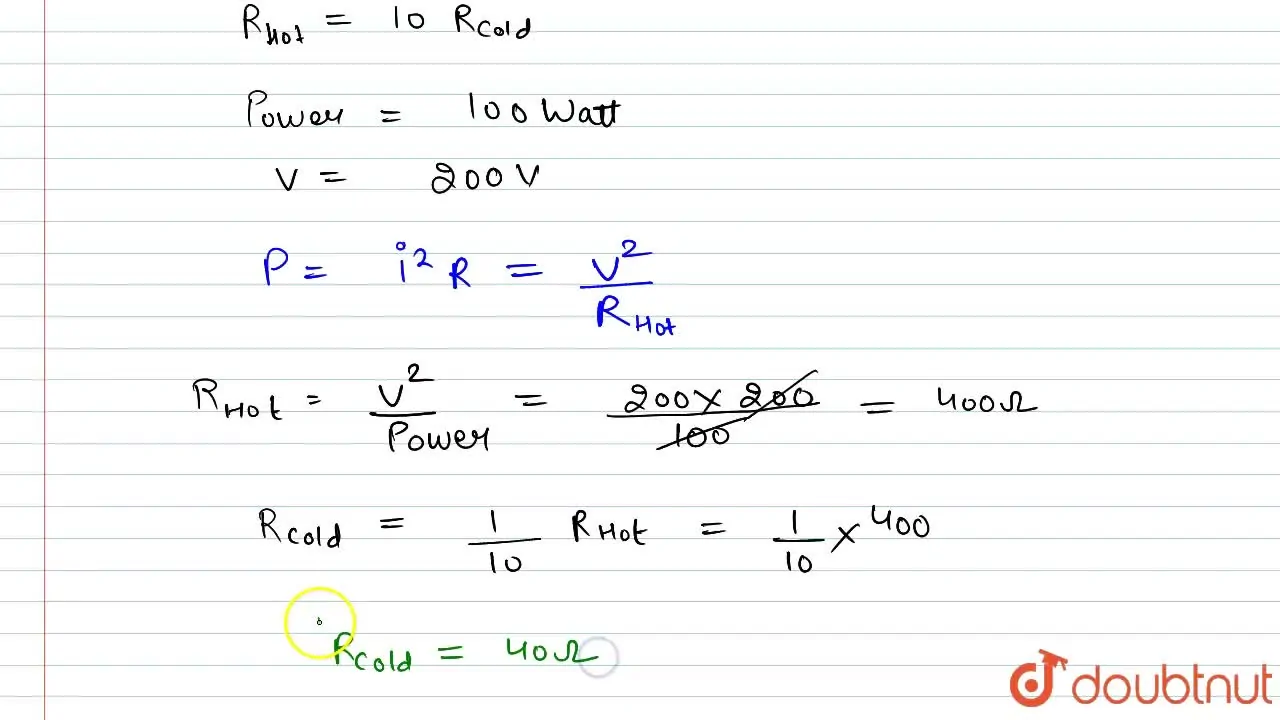 R_Hot = 10 R_Cold
Power = 100 Watt
V = 200 V
P = i² R = V² / R_Hot
R_Hot = V² / Power = 200 × 200 / 100 = 400 Ω
R_Cold = 1/10 R_Hot = 1/10 × 400
R_Cold = 40 Ω
doubtnut